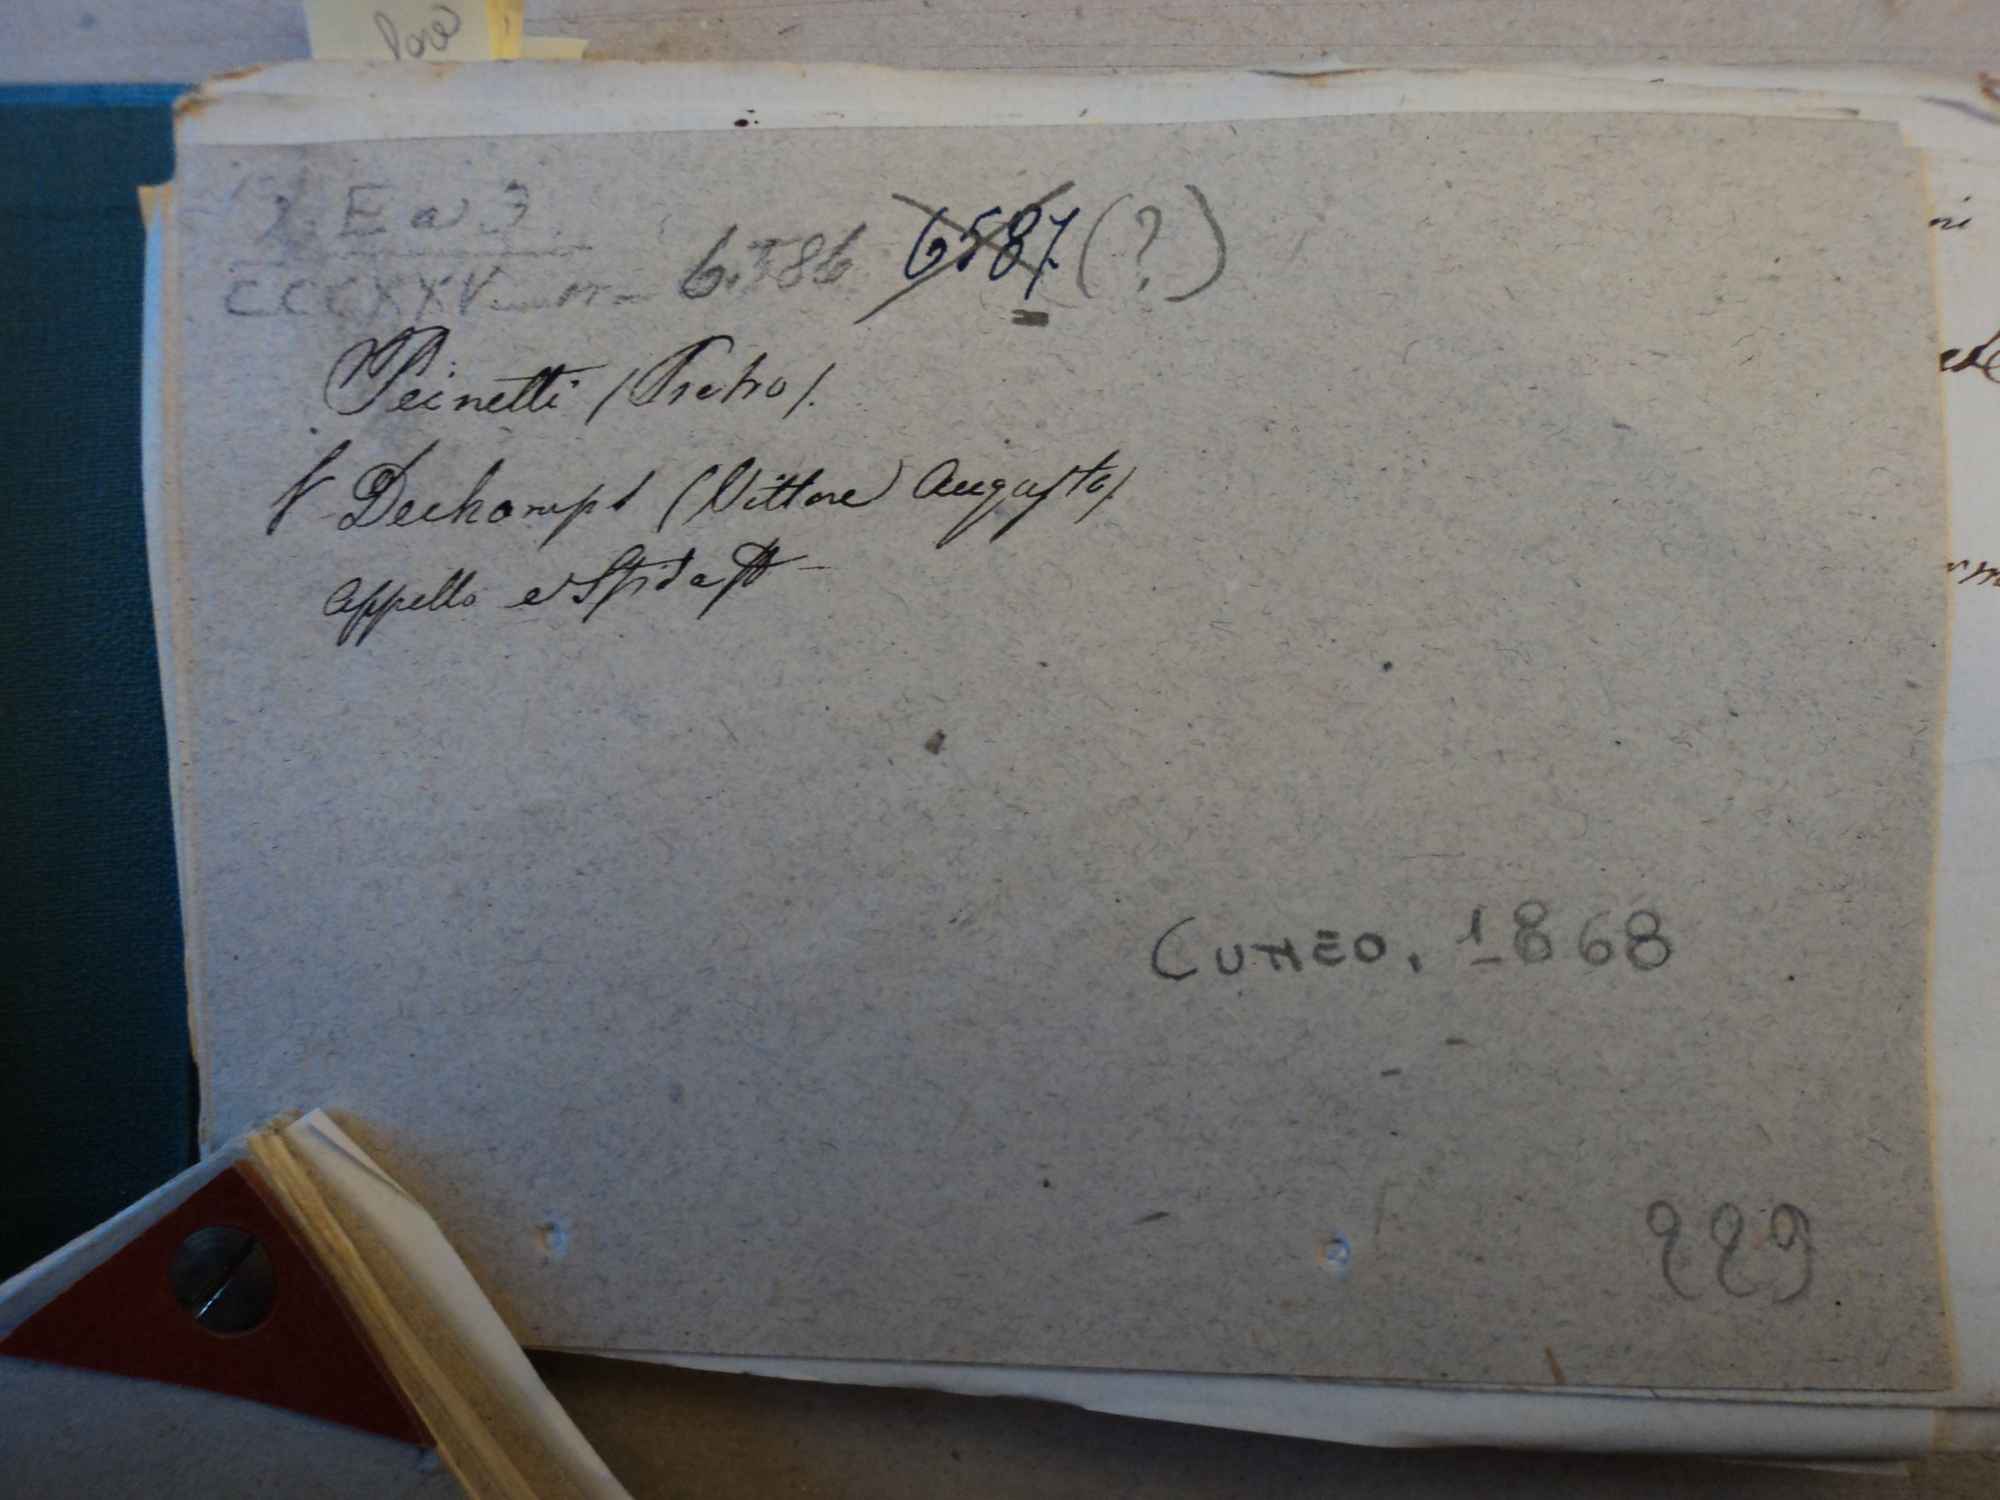 E a 3
CCCXXV n. 6.586 6587 (?)
Peinetti (Pietro).
Dechamps (Vittore Augusto)
Appello e Sfida
CUNEO. 1868
229